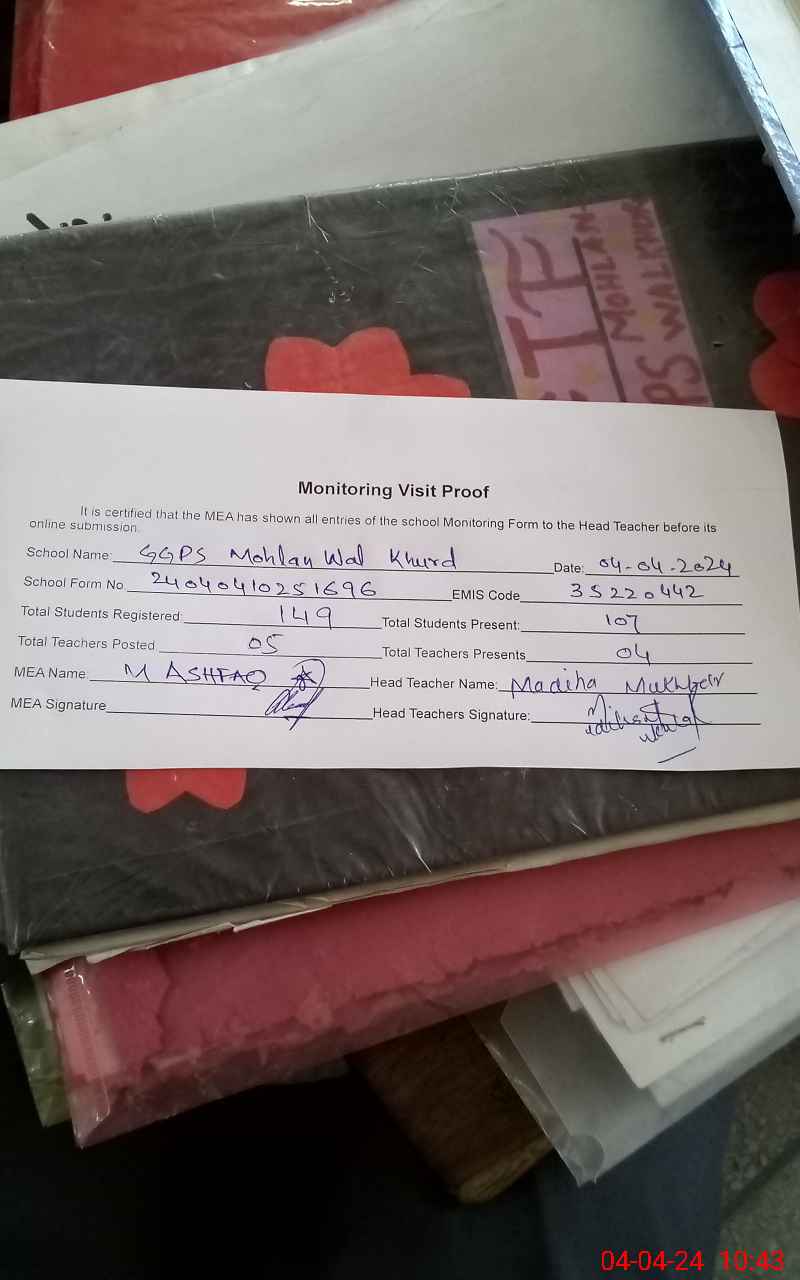 MOHLAN-
PS WALKHUR
Monitoring Visit Proof
It is certified that the MEA has shown all entries of the school Monitoring Form to the Head Teacher before its
online submission.
School Name: GGPS Mohlan Wal Khurd Date: 04-04-2024
School Form No. 24040410251696 EMIS Code 35220442
Total Students Registered: 149 Total Students Present: 107
Total Teachers Posted 05 Total Teachers Presents 04
MEA Name: M ASHFAQ Head Teacher Name: Madiha Mukhtar
MEA Signature Head Teachers Signature:
04-04-24 10:43